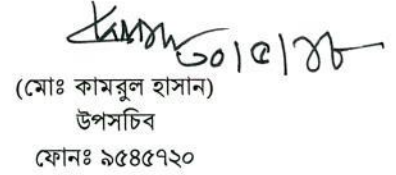 ৩০|৫|১৮
(মোঃ কামরুল হাসান)
উপসচিব
ফোনঃ ৯৫৪৫৭২০